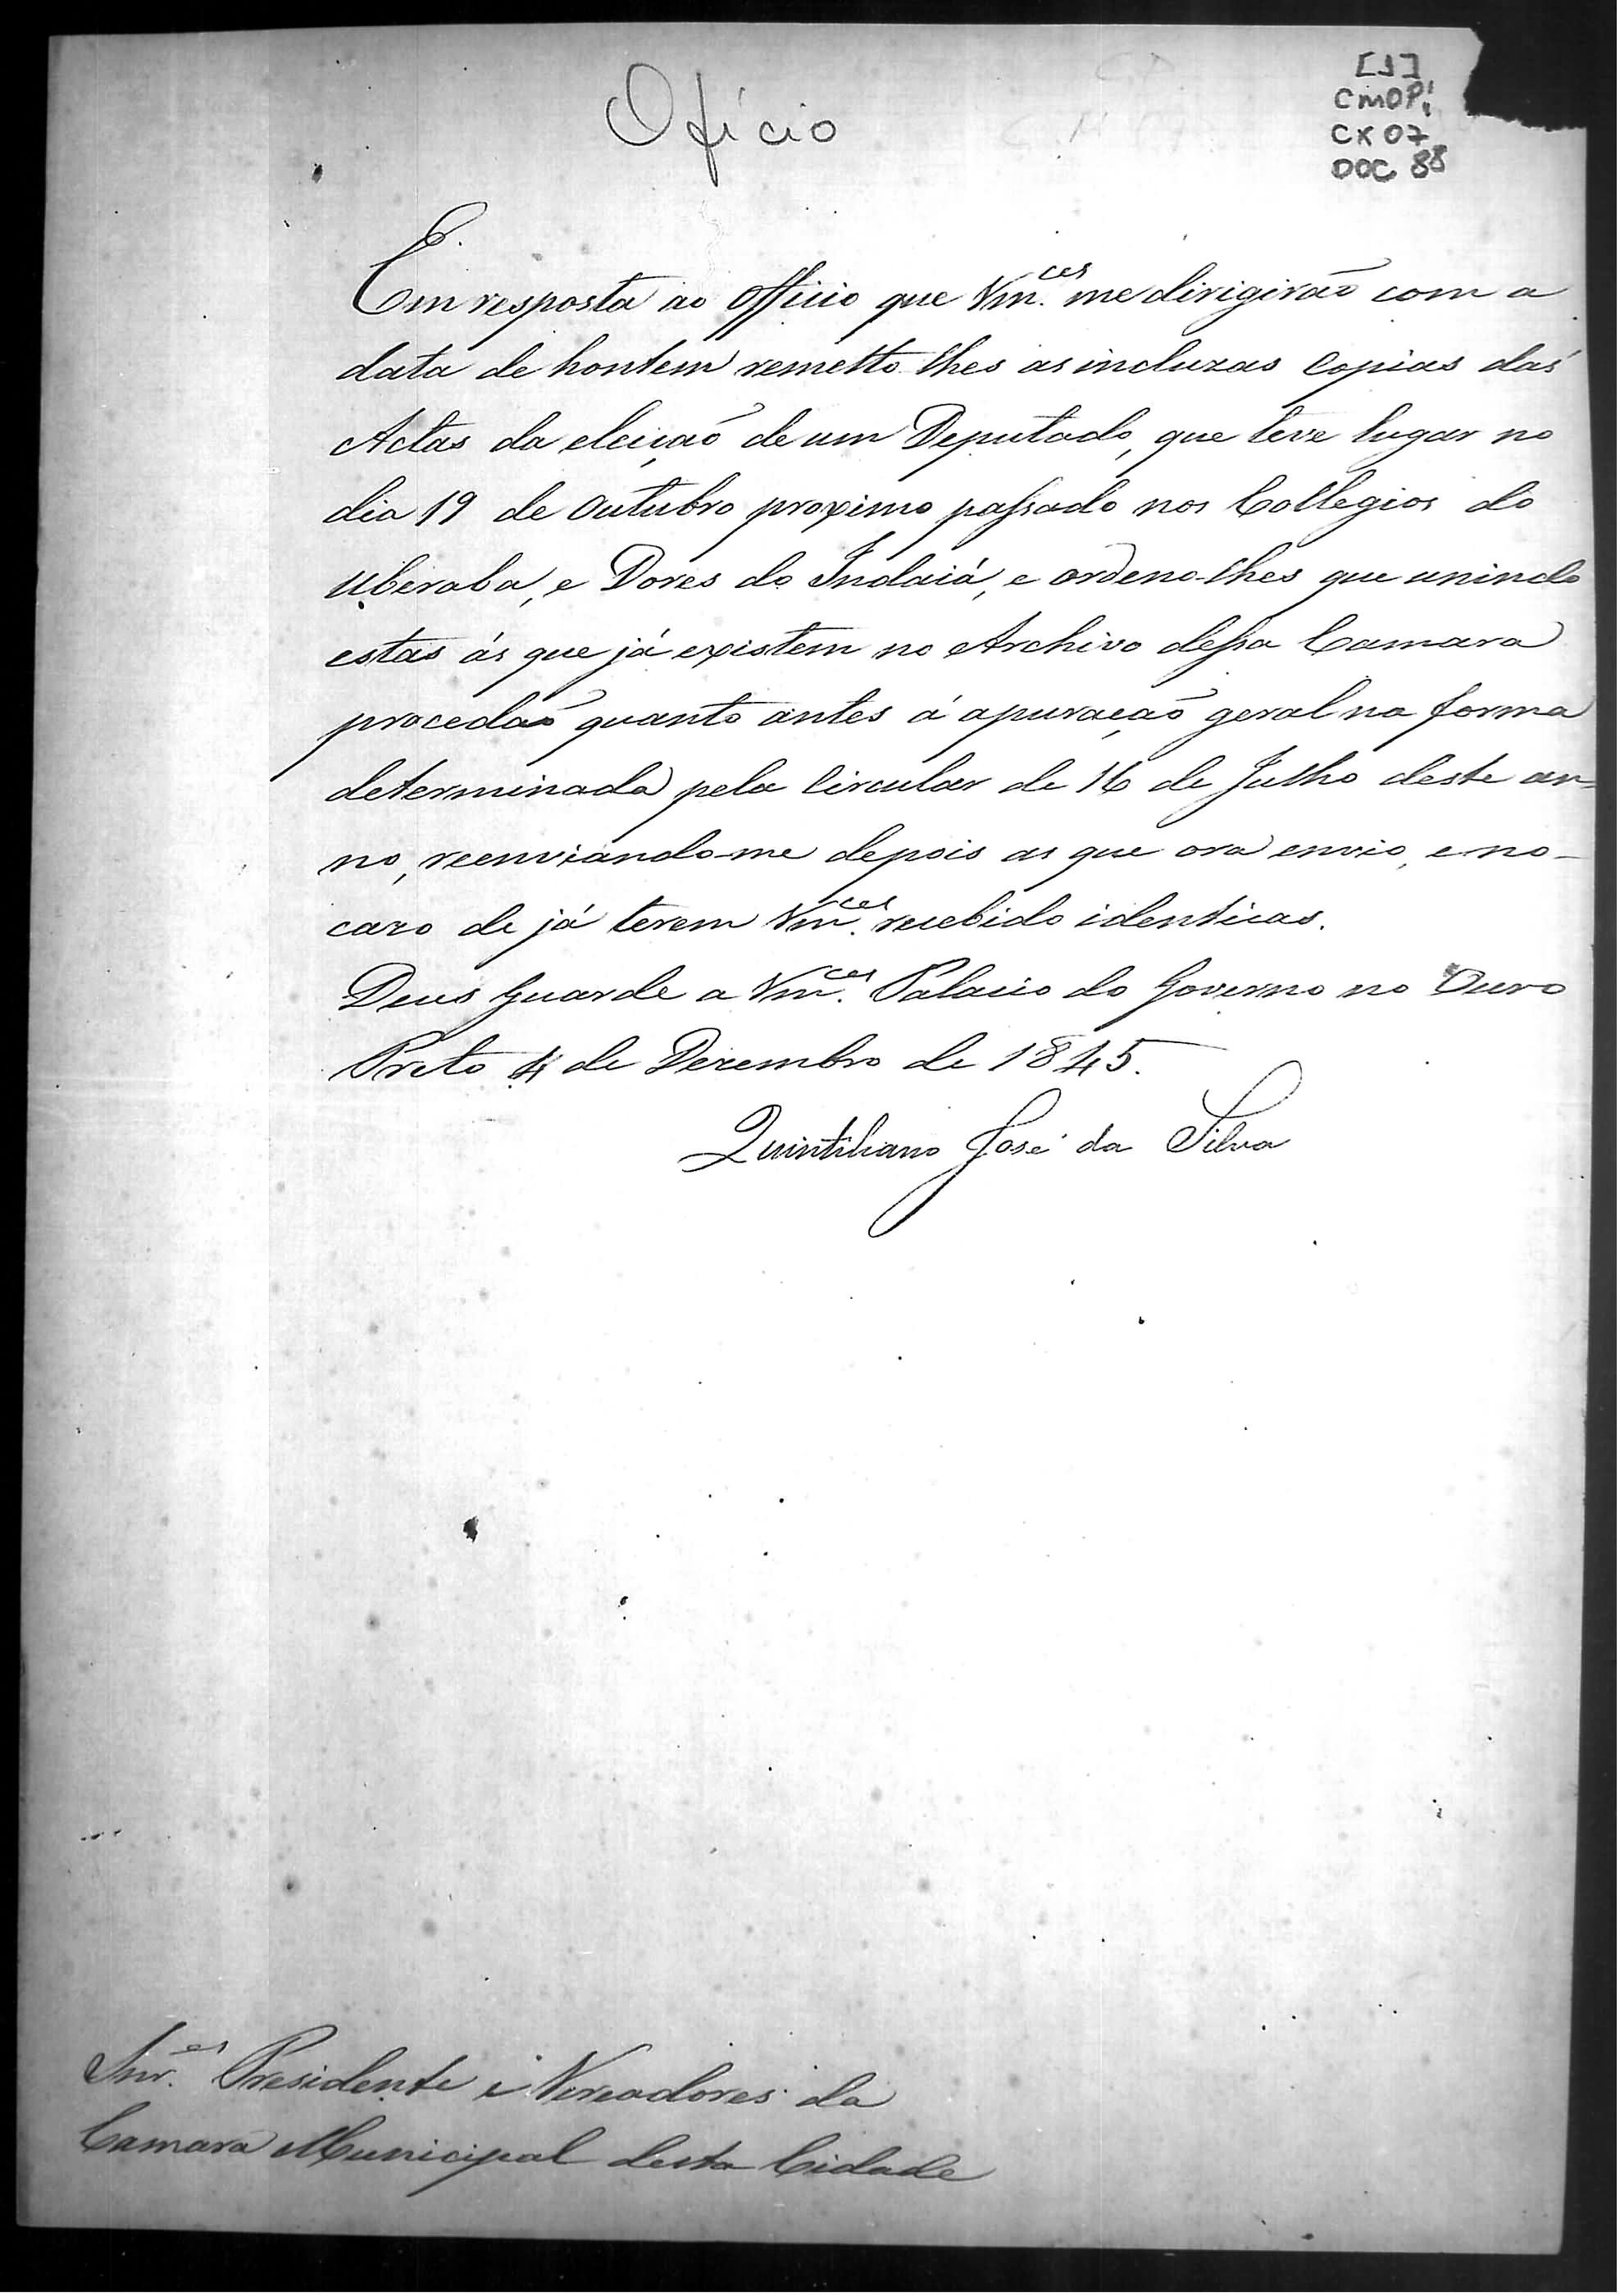 Ofício
[1]
CMOP:
CX 07
DOC 88
Em resposta ao Officio que Vm.ces me dirigirão com a
data de hontem remetto-lhes as incluzas Copias das
Actas da eleição de um Deputado, que teve lugar no
dia 19 de Outubro proximo paſsado nos Collegios do
Uberaba, e Dores do Indaiá, e ordeno-lhes que unindo
estas ás que já existem no Archivo deſsa Camara
procedaõ quanto antes á apuração geral na forma
determinada pela Circular de 16 de Julho deste an=
no, reenviando-me depois as que ora envio, e no-
cazo de já terem Vm.ces recebido identicas.
Deus Guarde a Vm.ces Palacio do Governo no Ouro
Preto 4 de Dezembro de 1845.
Quintiliano José da Silva
Snr.es Presidente e Vereadores da
Camara Municipal desta Cidade